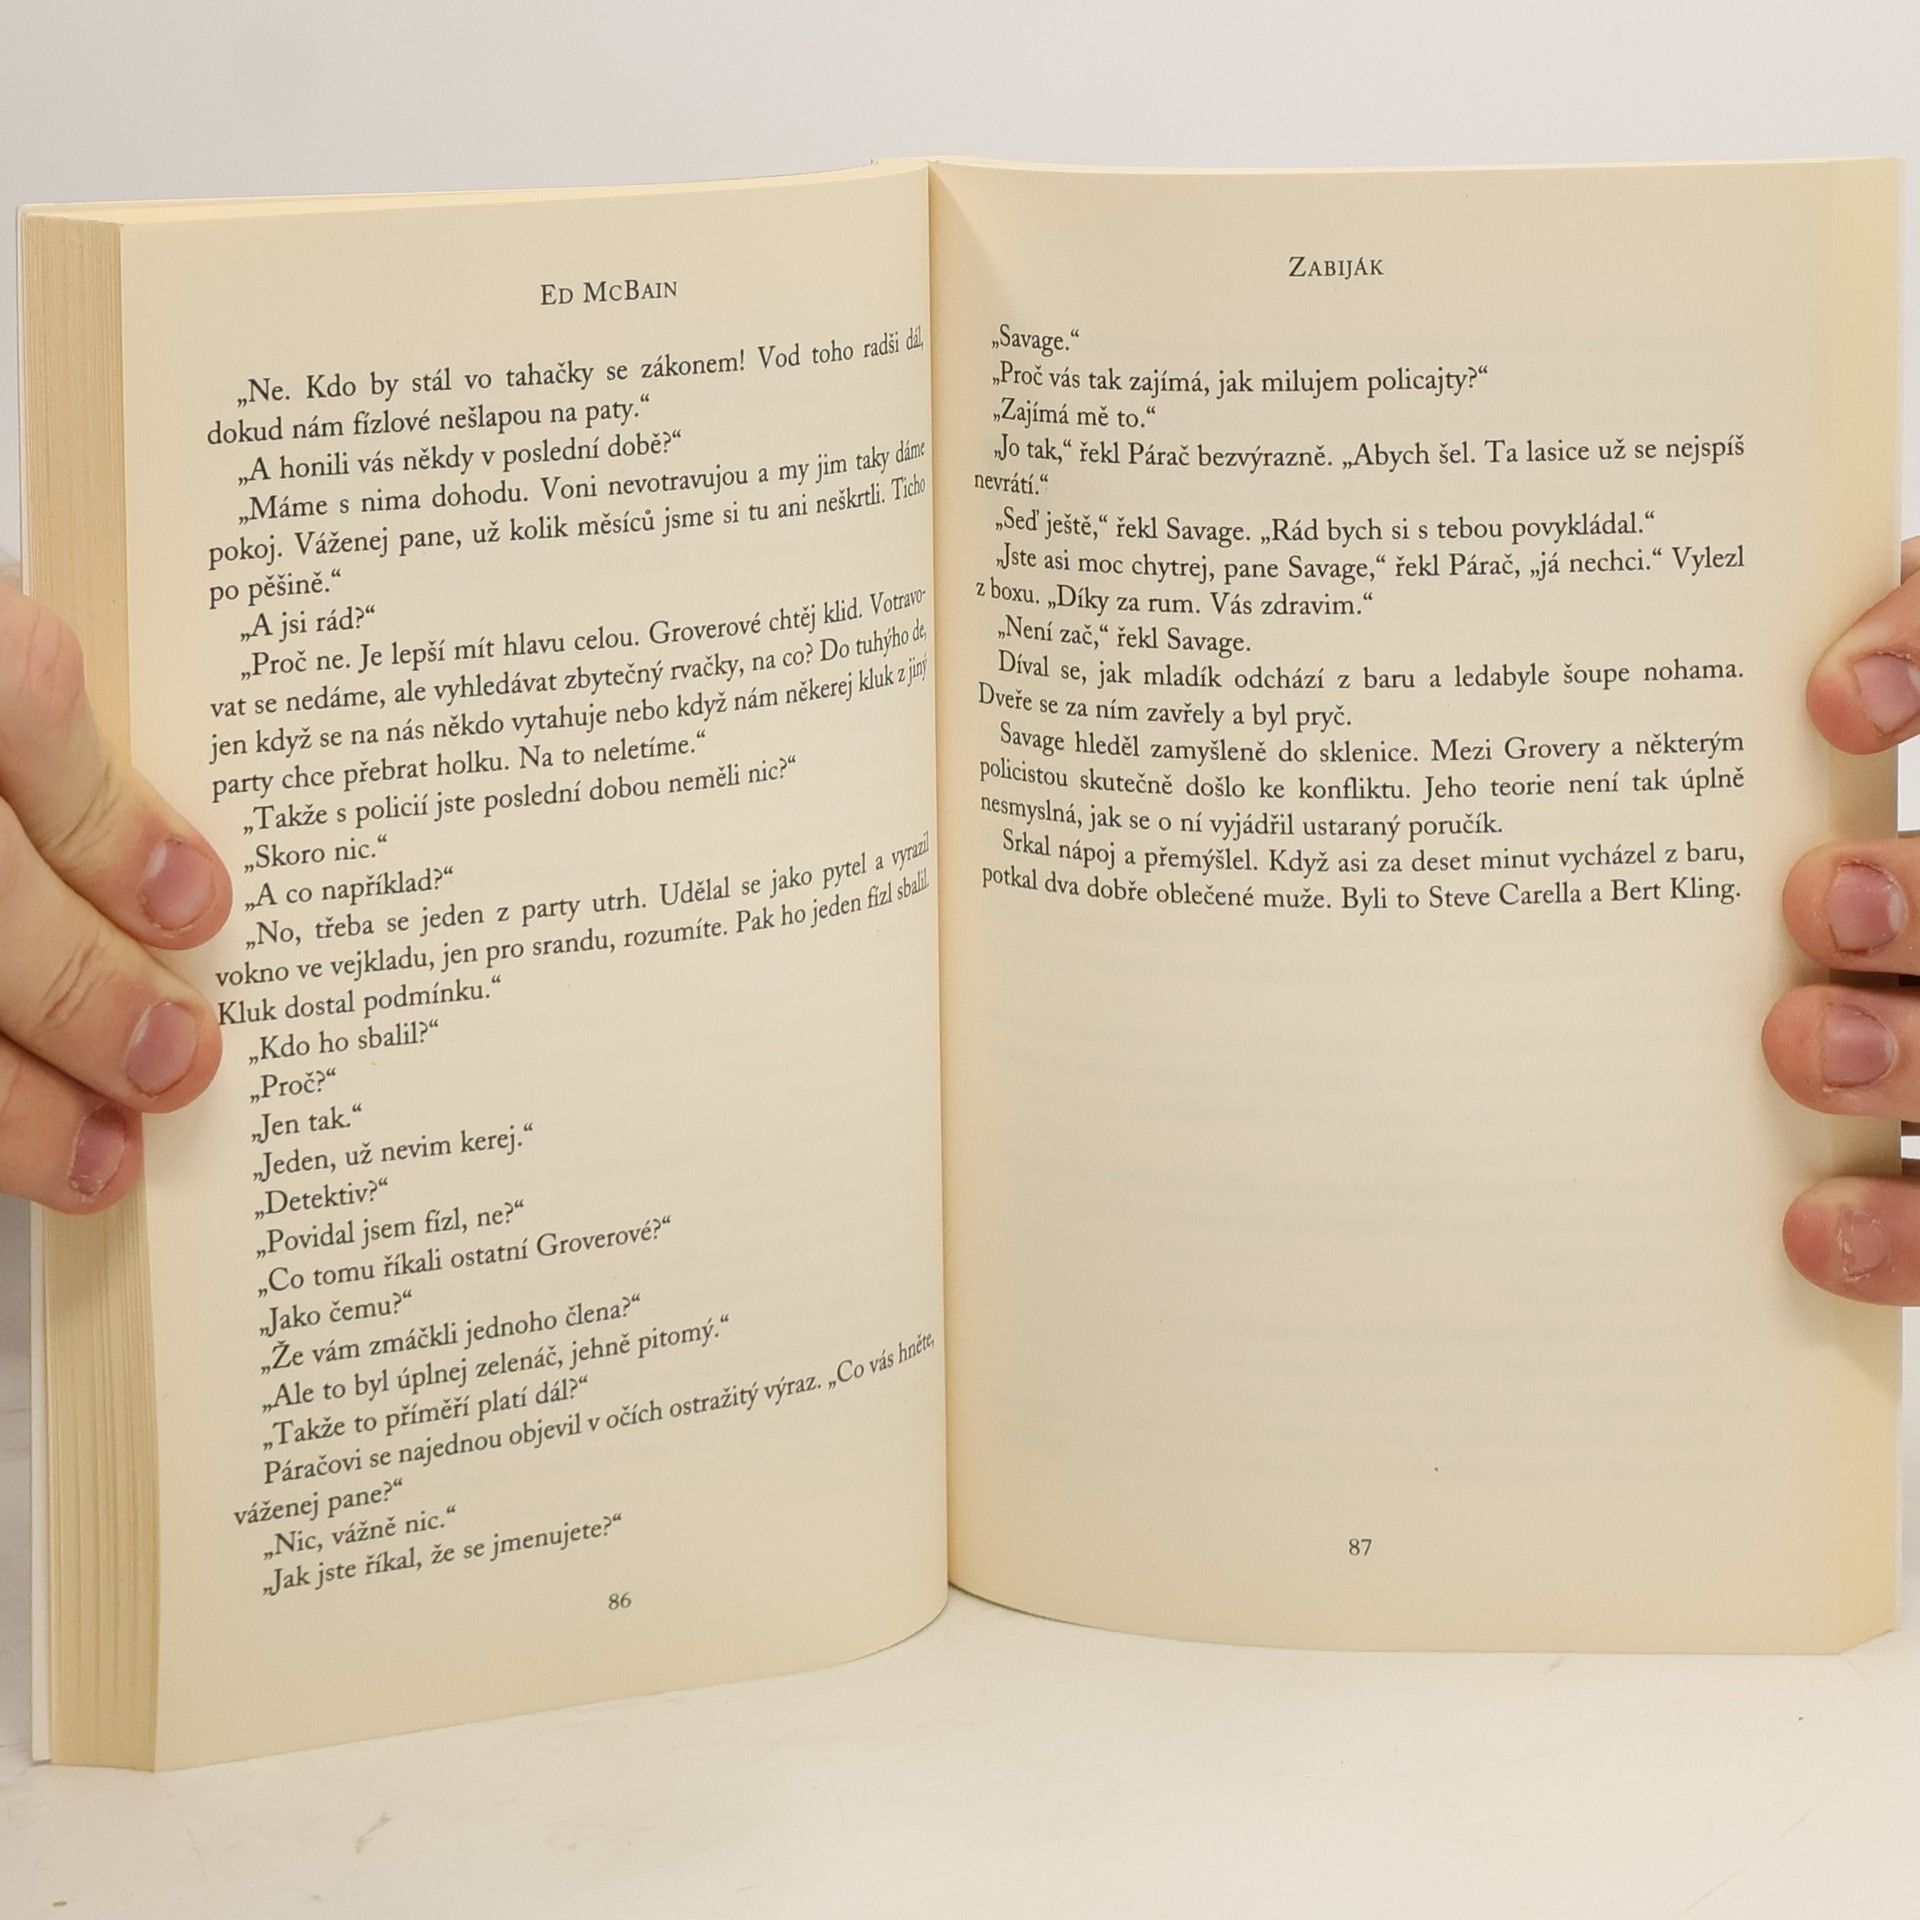 ED MCBAIN
„Ne. Kdo by stál vo tahačky se zákonem! Vod toho radši dál,
dokud nám fízlové nešlapou na paty.“
„A honili vás někdy v poslední době?“
„Máme s nima dohodu. Voni nevotravujou a my jim taky dáme
pokoj. Váženej pane, už kolik měsíců jsme si tu ani neškrtli. Ticho
po pěšině.“
„A jsi rád?“
„Proč ne. Je lepší mít hlavu celou. Groverové chtěj klid. Votravo-
vat se nedáme, ale vyhledávat zbytečný rvačky, na co? Do tuhýho de,
jen když se na nás někdo vytahuje nebo když nám někerej kluk z jiný
party chce přebrat holku. Na to neletíme.“
„Takže s policií jste poslední dobou neměli nic?“
„Skoro nic.“
„A co například?“
„No, třeba se jeden z party utrh. Udělal se jako pytel a vyrazil
vokno ve vejkladu, jen pro srandu, rozumíte. Pak ho jeden fízl sbalil.
Kluk dostal podmínku.“
„Kdo ho sbalil?“
„Proč?“
„Jen tak.“
„Jeden, už nevim kerej.“
„Detektiv?“
„Povidal jsem fízl, ne?“
„Co tomu říkali ostatní Groverové?“
„Jako čemu?“
„Že vám zmáčkli jednoho člena?“
„Ale to byl úplnej zelenáč, jehně pitomý.“
„Takže to příměří platí dál?“
Páračovi se najednou objevil v očích ostražitý výraz. „Co vás hněte,
váženej pane?“
„Nic, vážně nic.“
„Jak jste říkal, že se jmenujete?“
86
ZABIJÁK
„Savage.“
„Proč vás tak zajímá, jak milujem policajty?“
„Zajímá mě to.“
„Jo tak,“ řekl Párač bezvýrazně. „Abych šel. Ta lasice už se nejspíš
nevrátí.“
„Seď ještě,“ řekl Savage. „Rád bych si s tebou povykládal.“
„Jste asi moc chytrej, pane Savage,“ řekl Párač, „já nechci.“ Vylezl
z boxu. „Díky za rum. Vás zdravim.“
„Není zač,“ řekl Savage.
Díval se, jak mladík odchází z baru a ledabyle šoupe nohama.
Dveře se za ním zavřely a byl pryč.
Savage hleděl zamyšleně do sklenice. Mezi Grovery a některým
policistou skutečně došlo ke konfliktu. Jeho teorie není tak úplně
nesmyslná, jak se o ní vyjádřil ustaraný poručík.
Srkal nápoj a přemýšlel. Když asi za deset minut vycházel z baru,
potkal dva dobře oblečené muže. Byli to Steve Carella a Bert Kling.
87